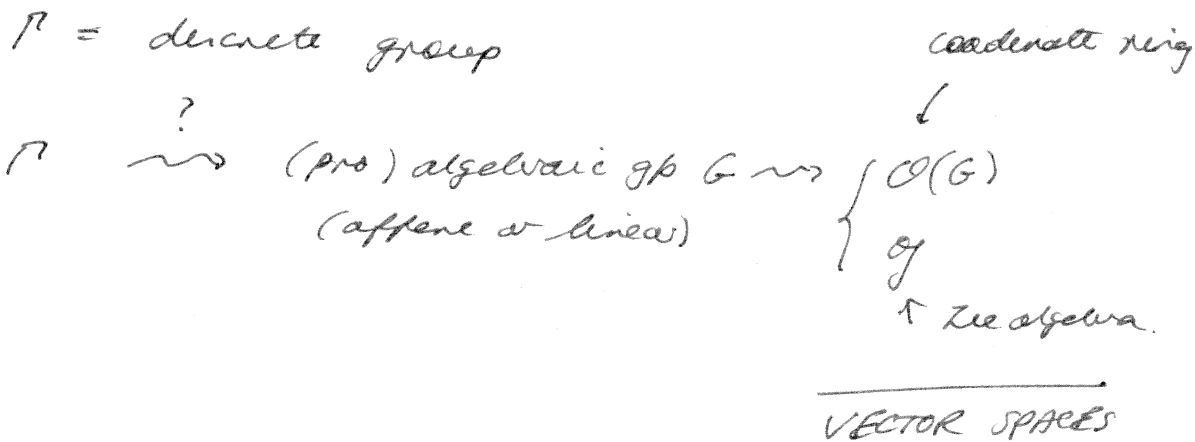 Γ = discrete group
coordinate ring
↓
?
Γ ⇝ (pro) algebraic gp G ⇝ { O(G)
(affine or linear)
𝔤
↑ Lie algebra.
VECTOR SPACES